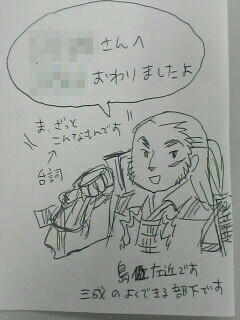 さんへ
おわりましたよ
ま、ざっと
こんなもんです
台詞
島 左近です
三成のよくできる部下です